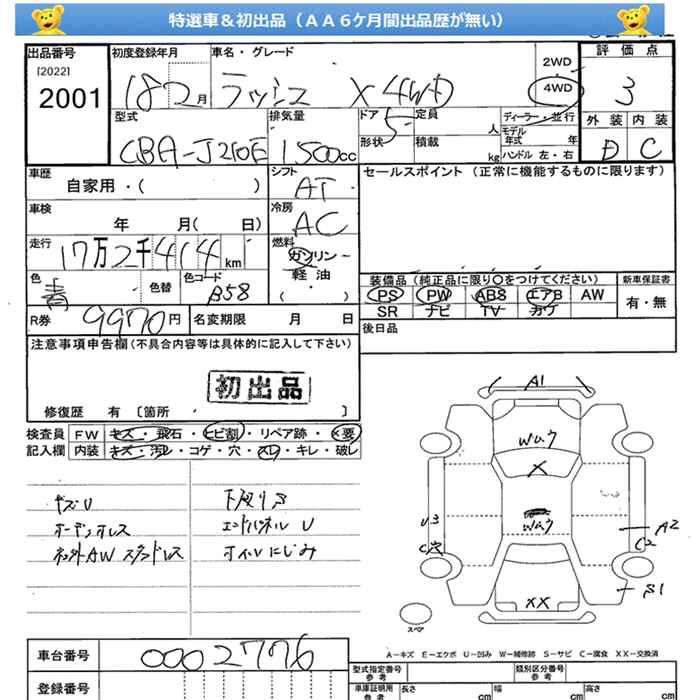 特選車＆初出品（ＡＡ６ケ月間出品歴が無い）
出品番号
[2022]
2001
初度登録年月
18 2 月
車名・グレード
ラッシュ X 4WD
2WD
4WD
評価点
3
外装 内装
D C
型式
CBA-J210E
排気量
1500cc
ドア
5
形状
定員
人
積載
kg
ディーラー・並行
モデル年式 年
ハンドル 左・右
車歴
自家用・( )
シフト
AT
セールスポイント（正常に機能するものに限ります）
車検
年 月( 日)
冷房
AC
走行
17万2千414km
燃料
ガソリン
軽油
( )
色
青
色替
色コード
B58
装備品（純正品に限り○をつけてください）
新車保証書
PS PW ABS エアB AW
SR ナビ TV カワ
有・無
R券
9970円
名変期限 月 日
後日品
注意事項申告欄(不具合内容等は具体的に記入して下さい)
初出品
修復歴 有 〔箇所 〕
検査員
記入欄
FW キズ・飛石・ヒビ割・リペア跡・×要
内装 キズ・汚レ・コゲ・穴・スレ・キレ・破レ
キズU
下廻りS
オーディオレス
エンドパネル U
社外AW スタッドレス
オイルにじみ
A1
WU2
X
U3
A2
C2
XX
S1
スペア
A－キズ E－エクボ U－凹み W－補修跡 S－サビ C－腐食 XX－交換済
車台番号
0002776
登録番号
型式指定番号
参考
類別区分番号
参考
車庫証明用
参考
長さ cm
幅 cm
高さ cm